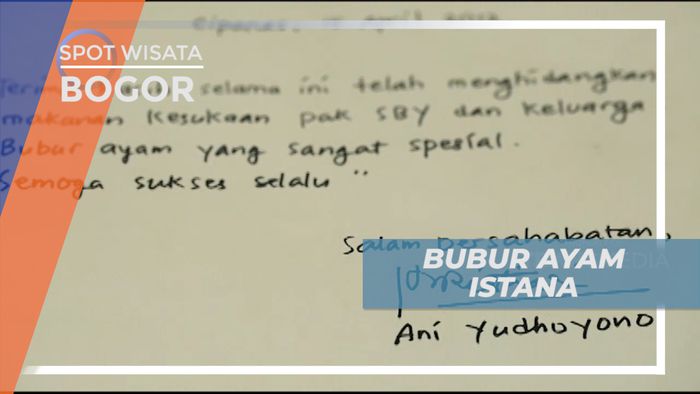 Cipanas, 15 April
SPOT WISATA
BOGOR
selama ini telah menghidangkan
makanan kesukaan pak SBY dan keluarga
Bubur ayam yang sangat spesial.
Semoga sukses selalu "
Salam bersahabatan,
BUBUR AYAM
ISTANA
Ani Yudhoyono